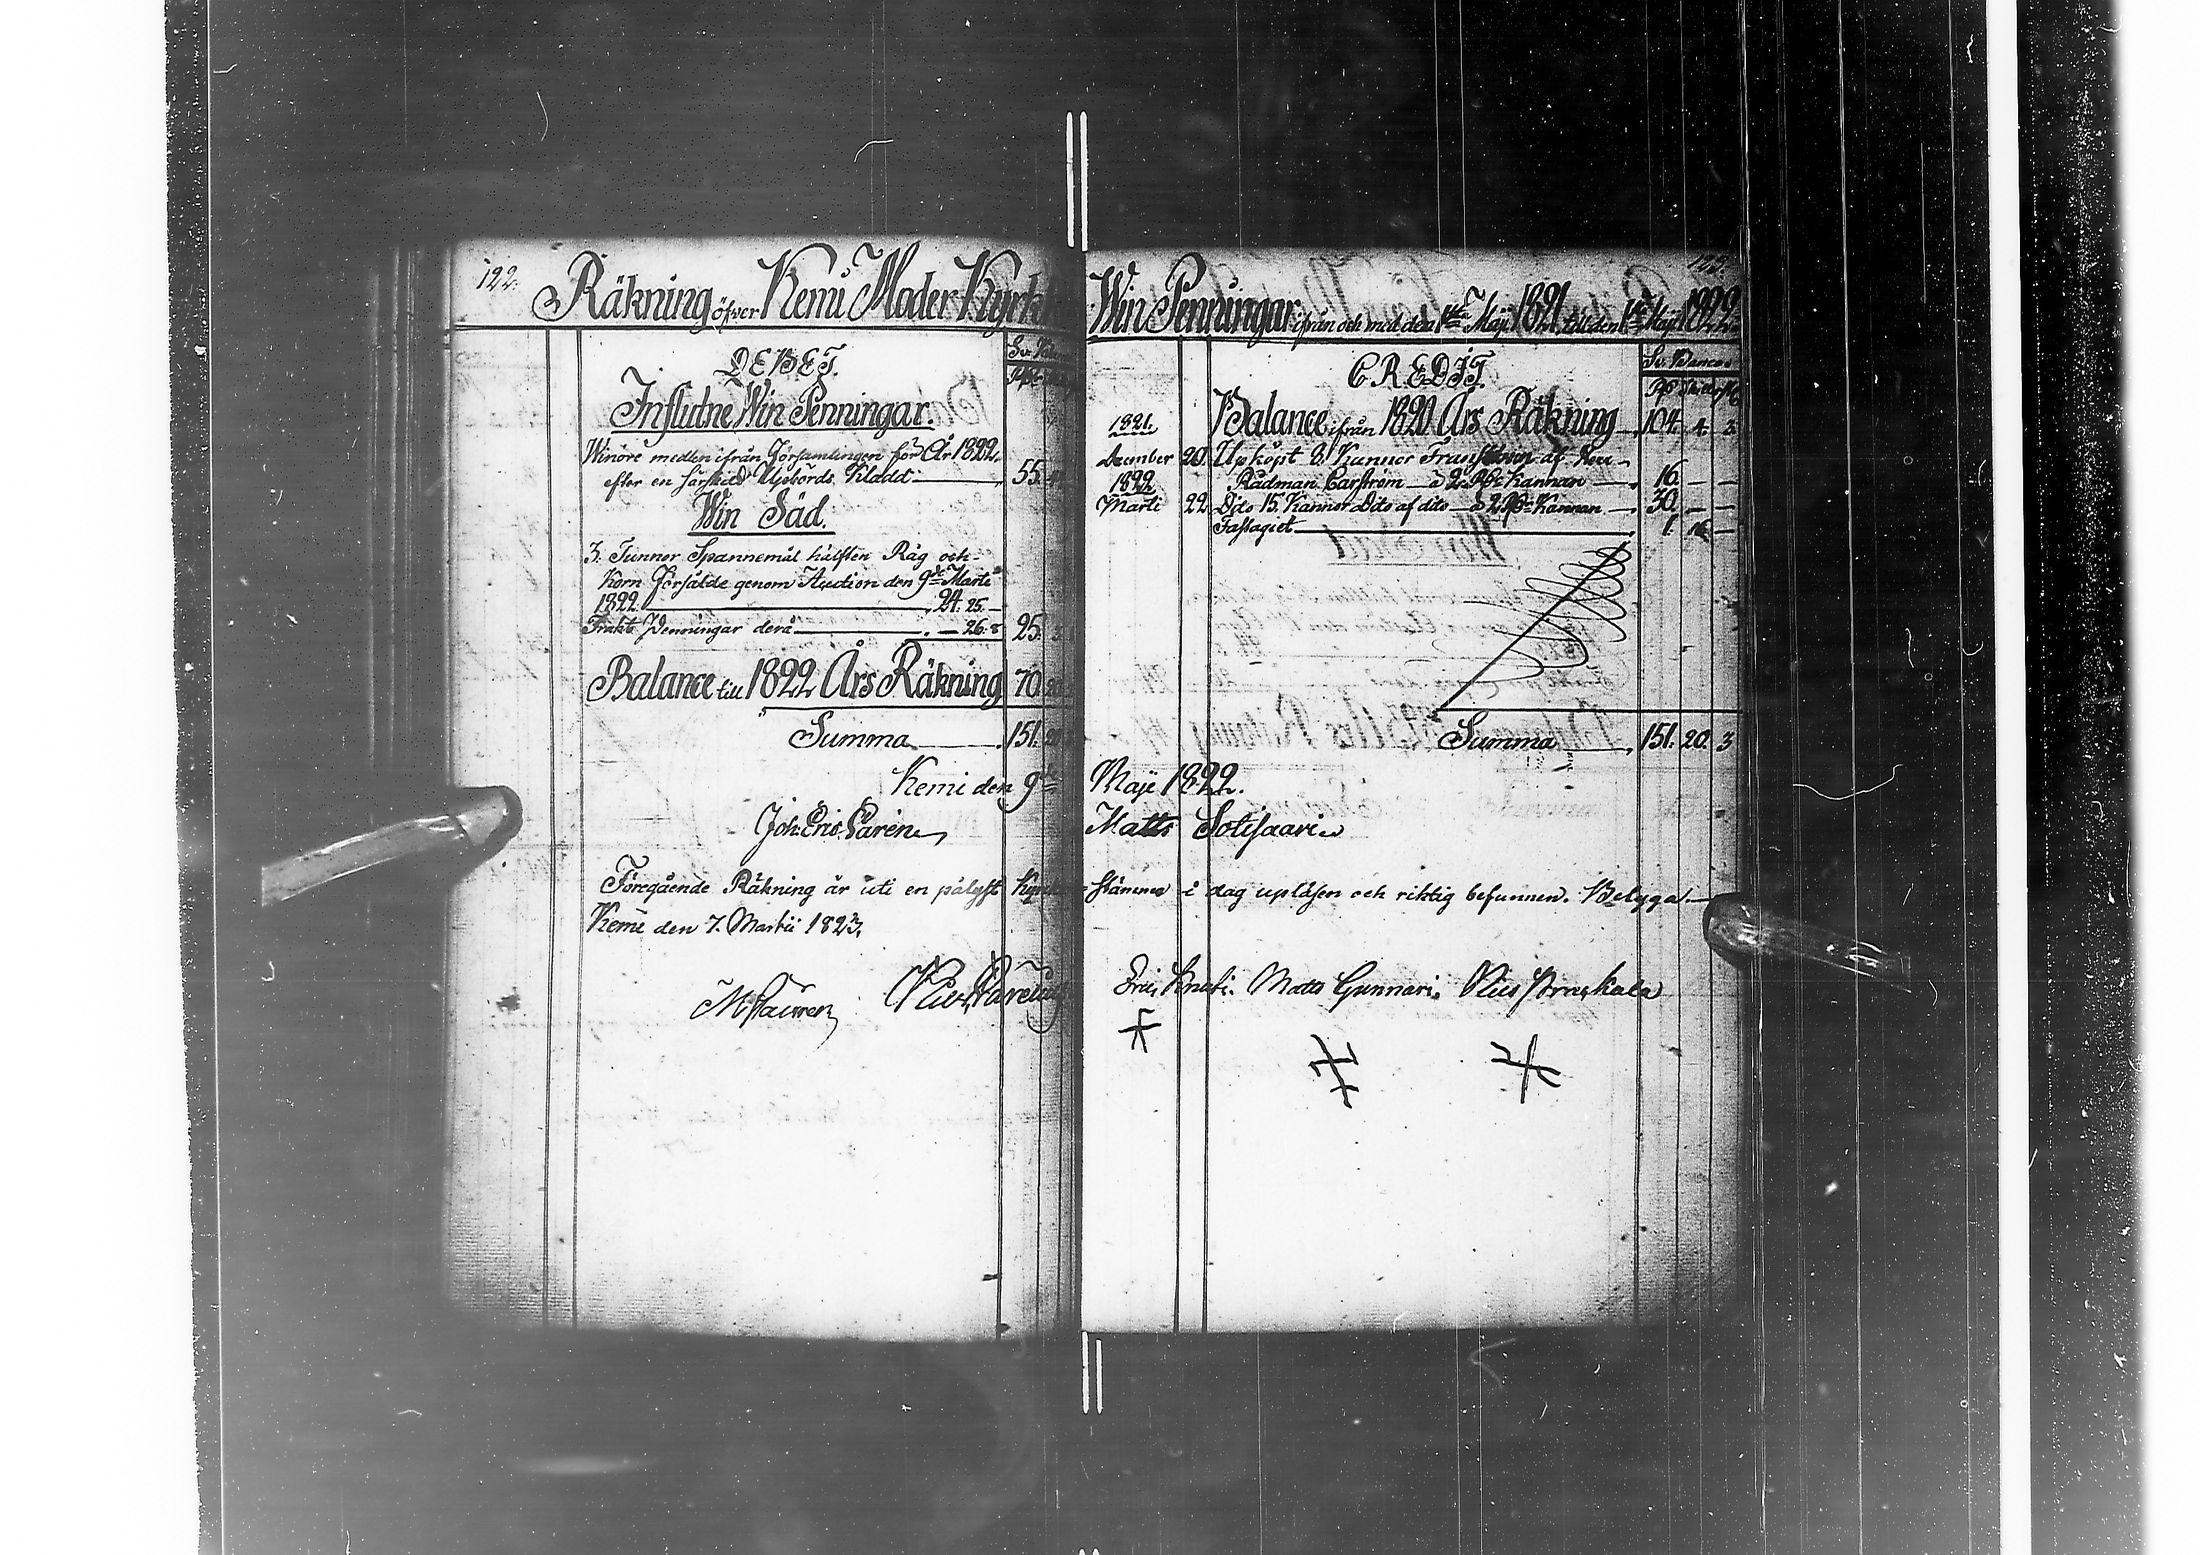 122.
Räkning öfver Kemi Moder Kyrk
DEBET.
Influtne Win Penningar.
Winöre medlen ifrån Församlingen för År 1822,
efter en särskild Upbörds Kladd 55.
Win Säd.
3. Tunnor Spannemål hälften Råg och
Korn försålde genom Auction den 9de Martii
1822 24. 25. —
Frakt Penningar derå — 26. 8 25.
Balance till 1822 Års Räkning 70.
Summa 151.
Kemi den 9de
Joh: Eric
Föregående Räkning är uti en pålyst Kyrko
Kemi den 7. Martii 1823.
123.
Win Penningar ifrån och med den 1sta Maji 1821 till den 1sta Maji 1822
CREDIT.
Sv. Banco
Balance ifrån 1820 Års Räkning 104. 4. 3
1821.
December 20. Upköpt 8 Kannor af Herr
1822 Rådman Carström à 2 Kannan 16. — —
Martii 22. Dito 15. Kannor Dito af dito à 2 Kannan 30. — —
Fastaget 1. 16 —
Summa 151. 20. 3
Maji 1822.
Matts Sotisaari
stämma i dag upläsen och riktig befunnen. Betyga.
Eric Matts Gunnari.